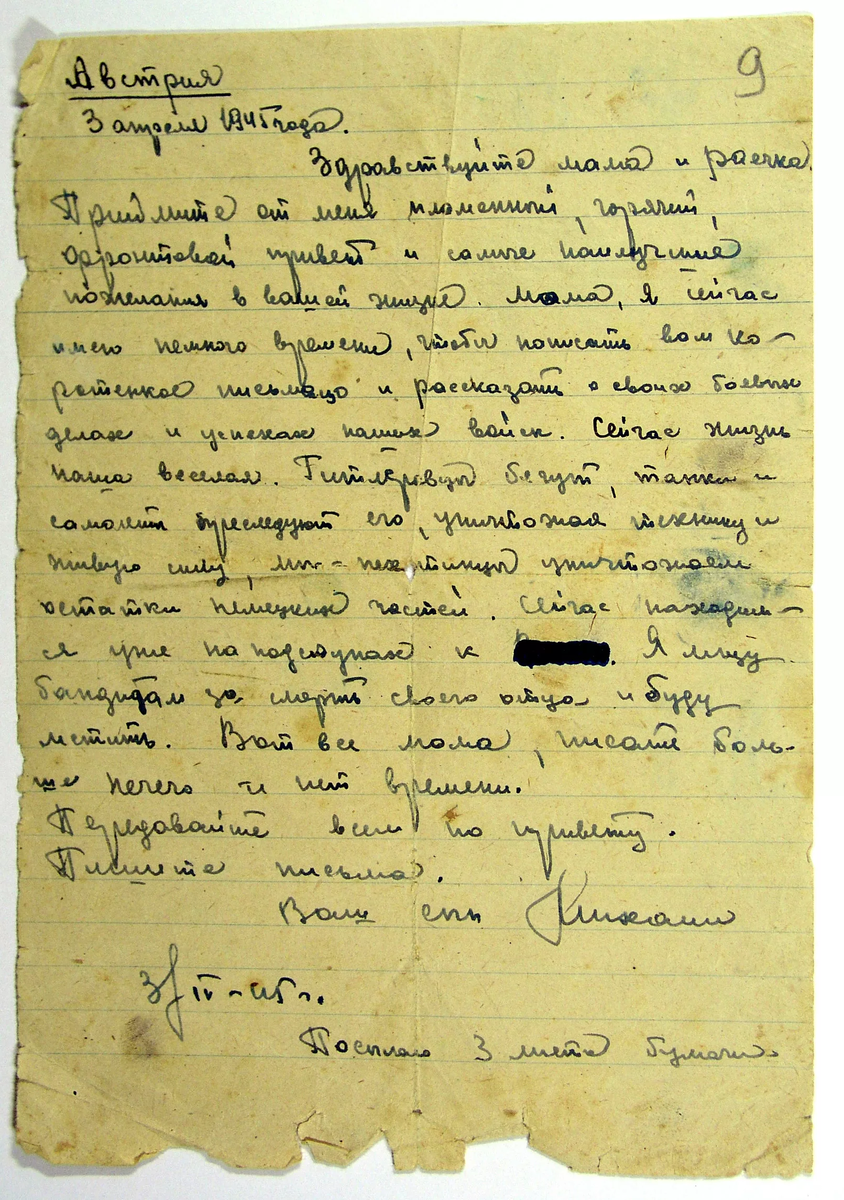 9
Австрия
3 апреля 1945 года.
Здравствуйте мама и раечка.
Примите от меня пламенный, горячий,
фронтовой привет и самые наилучшие
пожелания в вашей жизне. Мама, я сейчас
имею немного времени, чтобы написать вам ко-
ротенкое письмецо и рассказать о своих боевых
делах и успехах наших войск. Сейчас жизнь
наша веселая. Гитлеровцы бегут, танки и
самолеты преследуют его, уничтожая технику и
живую силу, мы - пехотинцы уничтожаем
остатки немецких частей. Сейчас находим-
ся уже на подступах к . Я мщу
бандитам за смерть своего отца и буду
мстить. Вот все мама, писать боль-
ше нечего и нет времени.
Передавайте всем по привету.
Пишите письма.
Ваш сын
3/IV-45г.
Посылаю 3 листа бумаги.